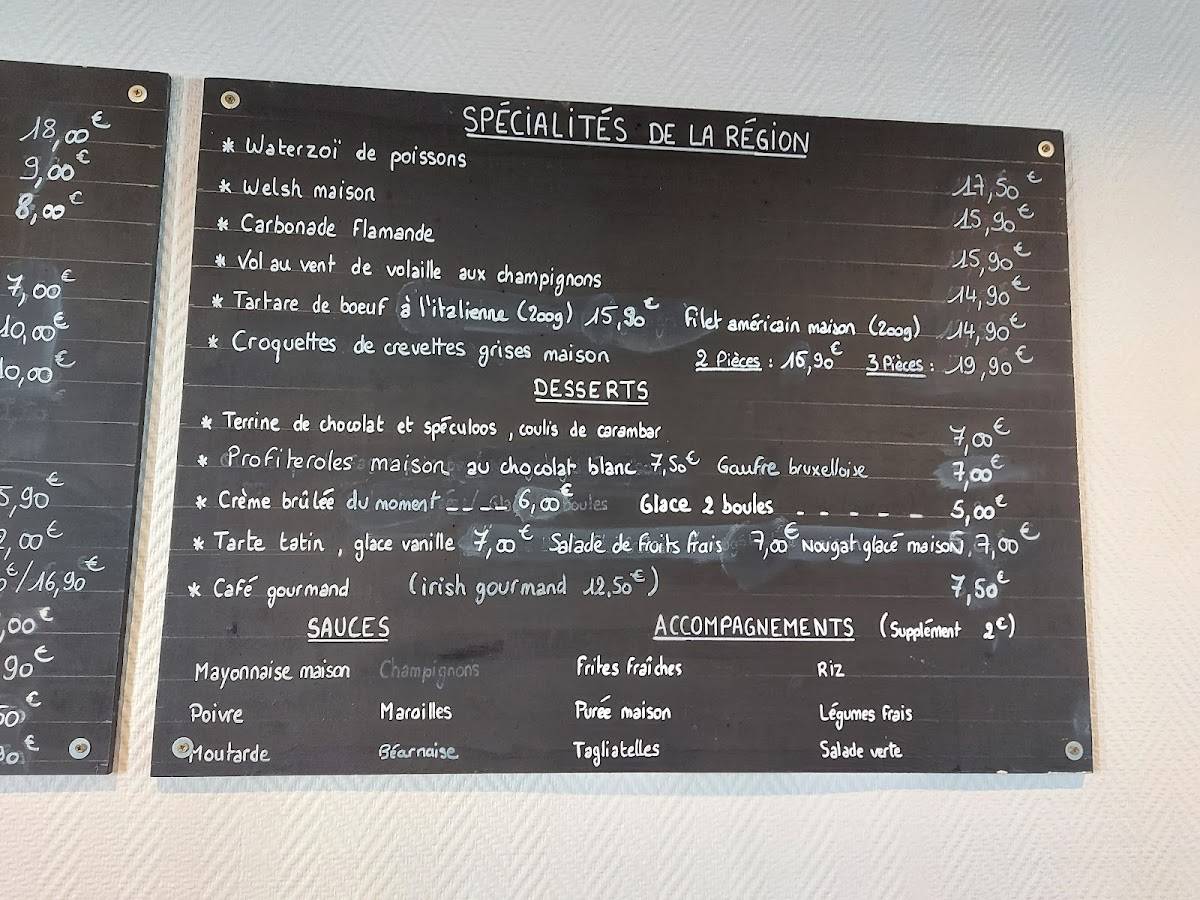 18,00€
9,00€
8,00€
7,00€
10,00€
10,00€
5,90€
,00€
€/16,90€
,00€
90€
50€
90€
SPÉCIALITÉS DE LA RÉGION
* Waterzoï de poissons 17,50€
* Welsh maison 15,90€
* Carbonade Flamande 15,90€
* Vol au vent de volaille aux champignons 14,90€
* Tartare de boeuf à l'italienne (200g) 15,90€ Filet américain maison (200g) 14,90€
* Croquettes de crevettes grises maison 2 Pièces : 15,90€ 3 Pièces : 19,90€
DESSERTS
* Terrine de chocolat et spéculoos, coulis de carambar 7,00€
* Profiteroles maison au chocolat blanc 7,50€ Gaufre bruxelloise 7,00€
* Crème brûlée du moment _ _ / _ _ 6,00€ Glace 2 boules _ _ _ _ _ _ _ 5,00€
* Tarte tatin, glace vanille 7,00€ Salade de fruits frais 7,00€ Nougat glacé maison 7,00€
* Café gourmand (irish gourmand 12,50€) 7,50€
SAUCES ACCOMPAGNEMENTS (Supplément 2€)
Mayonnaise maison Champignons Frites Fraîches Riz
Poivre Maroilles Purée maison Légumes Frais
Moutarde Béarnaise Tagliatelles Salade verte